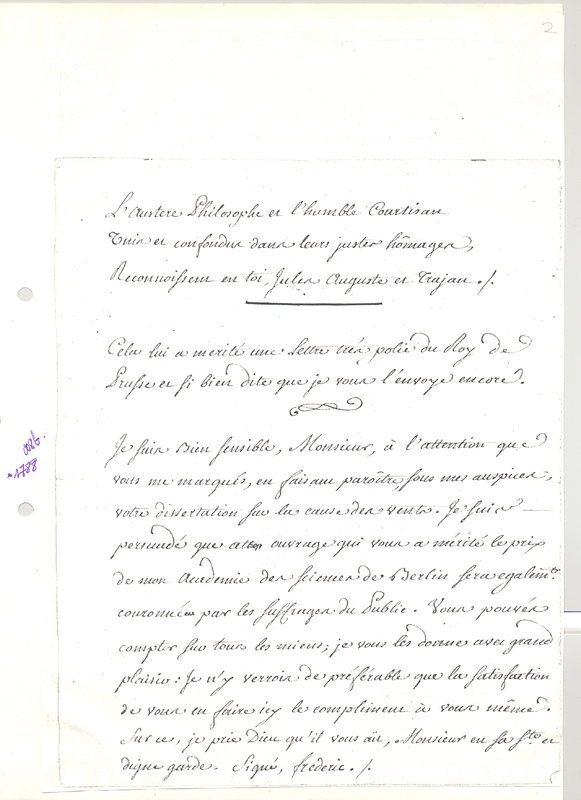 2
L'Austere Philosophe et l'humble Courtisan
Unis et confondus dans leurs justes hômages,
Reconnoissent en toi, Jules Auguste et Trajan ./.
Cela lui a merité une lettre trés polie du Roy de
Prusse et si bien dite que je vous l'envoye encore.
Je suis Bien sensible, Monsieur, à l'attention que
vous me marqués, en faisant paroître, sous mes auspices,
votre dissertation sur la cause des vents. Je suis
persuadé que ouvrage qui vous a mérité le prix
de mon Academie des sciences de Berlin sera egalemt.
couronné par les suffrages du Public. Vous pouvés
compter sur tous les miens; je vous les donne avec grand
plaisir: Je n'y verrois de préférable que la satisfaction
de vous en faire icy le compliment à vous même.
Sur ce, je prie Dieu qu'il vous ait, Monsieur en sa Ste. et
digne garde. Signé, frederic ./.
1788